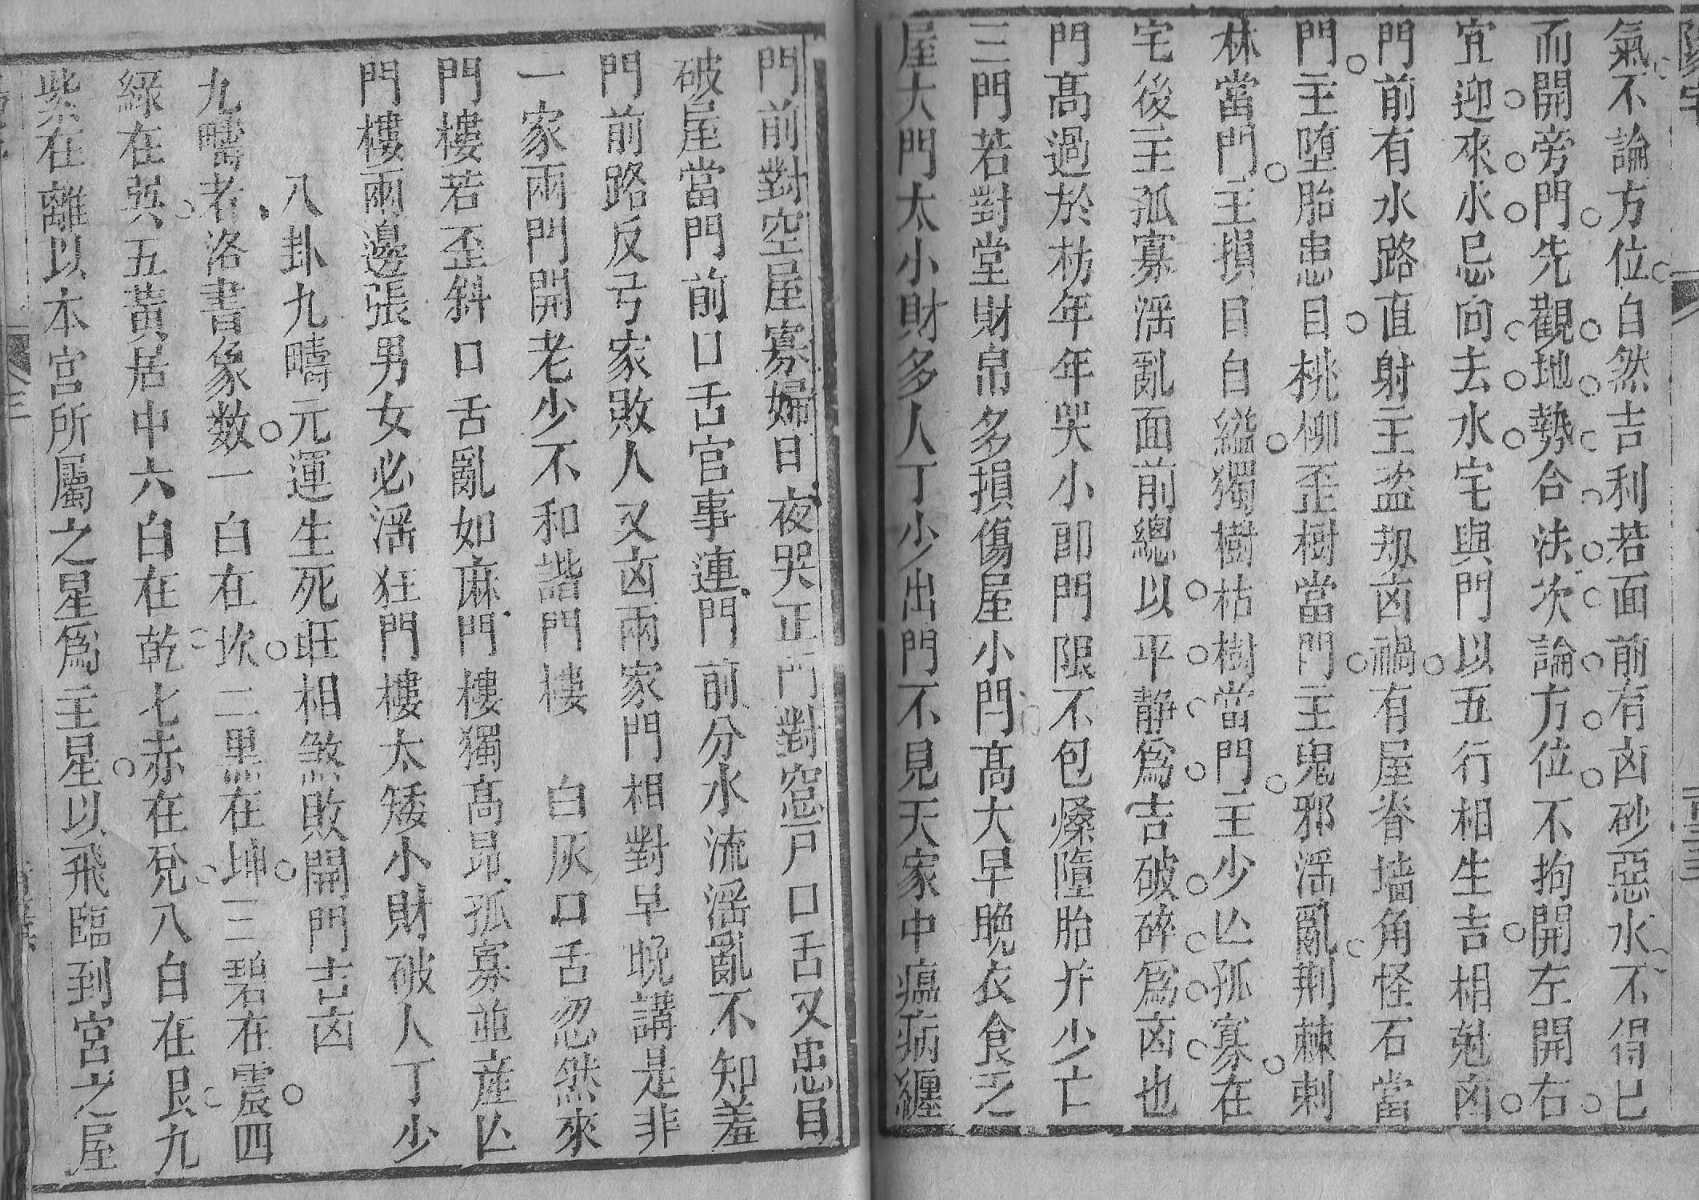 氣不論方位自然吉利若面前有凶砂惡水不得已
而開旁門先觀地勢合法次論方位不拘開左開右
宜迎來水忌向去水宅與門以五行相生吉相尅凶
門前有水路直射主盜刼凶禍有屋脊墻角怪石當
門主墮胎患目桃柳歪樹當門主鬼邪淫亂荆棘刺
林當門主損目自縊獨樹枯樹當門主少亾孤寡在
宅後主孤寡淫亂面前總以平靜爲吉破碎爲凶也
門高過於枋年年哭小卽門限不包㷮墮胎并少亡
三門若對堂財帛多損傷屋小門高大早晩衣食乏
屋大門太小財多人丁少出門不見天家中瘟病纏
門前對空屋寡婦日夜哭正門對窓戸口舌又患目
破屋當門前口舌官事連門前分水流淫亂不知羞
門前路反弓家敗人又凶兩家門相對早晩講是非
一家兩門開老少不和諧門樓 白灰口舌忽然來
門樓若歪斜口舌亂如麻門樓獨高昂孤寡並産亾
門樓兩邊張男女必淫狂門樓太矮小財破人丁少
八卦九疇元運生死旺相煞敗開門吉凶
九疇者洛書象数一白在坎二黒在坤三碧在震四
緑在巽五黃居中六白在乾七赤在兌八白在艮九
紫在離以本宮所屬之星爲主星以飛臨到宮之屋